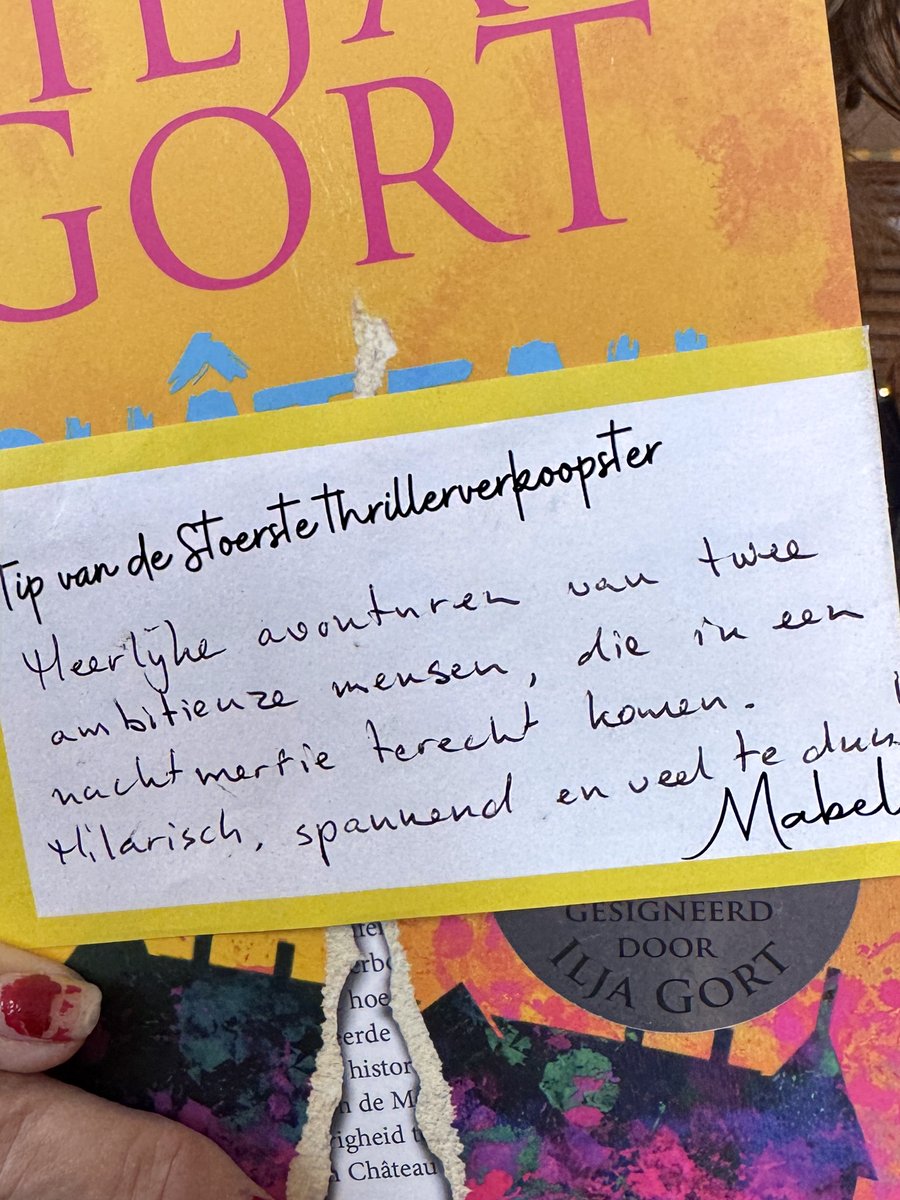 ILJA
GORT
CHÂTEAU
Tip van de Stoerste thrillerverkoopster
Heerlijke avonturen van twee
ambitieuze mensen, die in een
nachtmerrie terecht komen.
Hilarisch, spannend en veel te dun
Mabel
GESIGNEERD
DOOR
ILJA GORT
hoe
erde
histor
n de M
igheid t
Château